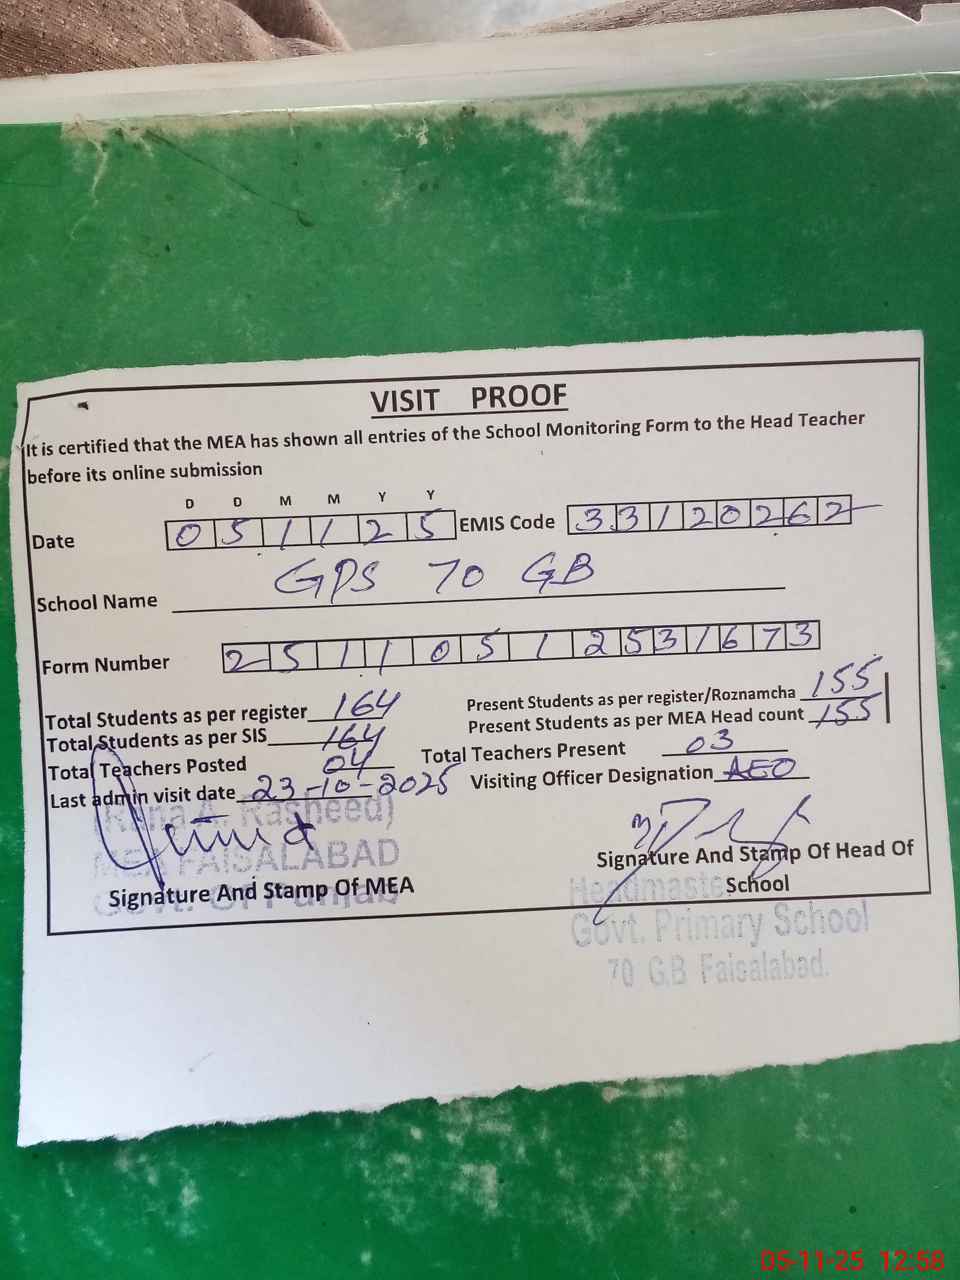 VISIT PROOF
It is certified that the MEA has shown all entries of the School Monitoring Form to the Head Teacher
before its online submission
D D M M Y Y
Date 0 5 1 1 2 5 EMIS Code 3 3 1 2 0 2 6 2
School Name GPS 70 GB
Form Number 2 5 1 1 0 5 1 2 5 3 1 6 7 3
Total Students as per register 164 Present Students as per register/Roznamcha 155
Total Students as per SIS 164 Present Students as per MEA Head count 155
Total Teachers Posted 04 Total Teachers Present 03
Last admin visit date 23-10-2025 Visiting Officer Designation AEO
(Rana A. Rasheed)
MEA FAISALABAD
Govt. Of Punjab
Signature And Stamp Of MEA
Signature And Stamp Of Head Of
School
Headmaster
Govt. Primary School
70 G.B Faisalabad.
05-11-25 12:58